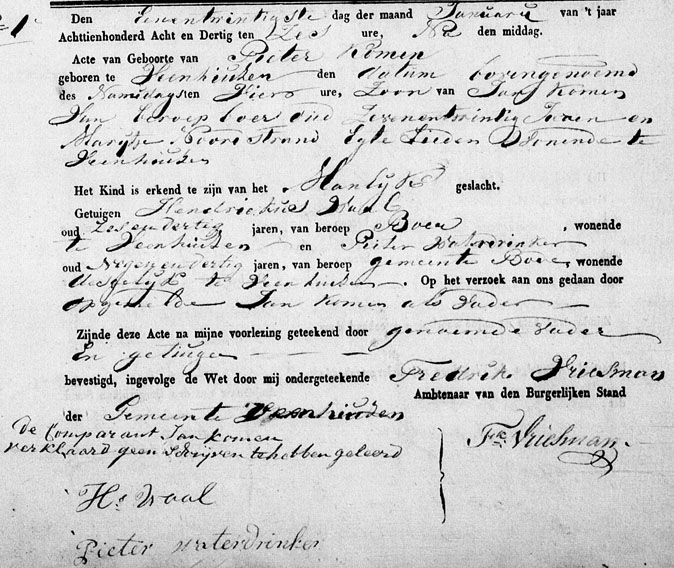 Den Eenentwintigste dag der maand Januarij van 't jaar
Achttienhonderd Acht en Dertig ten Zes ure, Na den middag.
Acte van Geboorte van Pieter Komen
geboren te Veenhuizen den datum bovengenoemd
des Namidags ten Vier ure, Zoon van Jan Komen
Van beroep boer oud Zevenentwintig Jaren en
Marijtje Noordstrand Egte Lieden Wonende te
Veenhuizen
Het Kind is erkend te zijn van het Manlijke geslacht.
Getuigen Hendrickus Waal
oud Zesendertig jaren, van beroep Boer, wonende
te Veenhuizen en Pieter Waterdrinker
oud Negenendertig jaren, van beroep gemeente Bode, wonende
te Veenhuizen. Op het verzoek aan ons gedaan door
opgemelde Jan Komen als Vader
Zijnde deze Acte na mijne voorlezing geteekend door genoemde Vader
En getuigen
bevestigd, ingevolge de Wet door mij ondergeteekende Fredrik Vriesman
Ambtenaar van den Burgerlijken Stand
der Gemeente Veenhuizen
de Comparant Jan Komen
verklaard geen schrijven te hebben geleerd
Fk. Vriesman
Hs. Waal
Pieter Waterdrinker